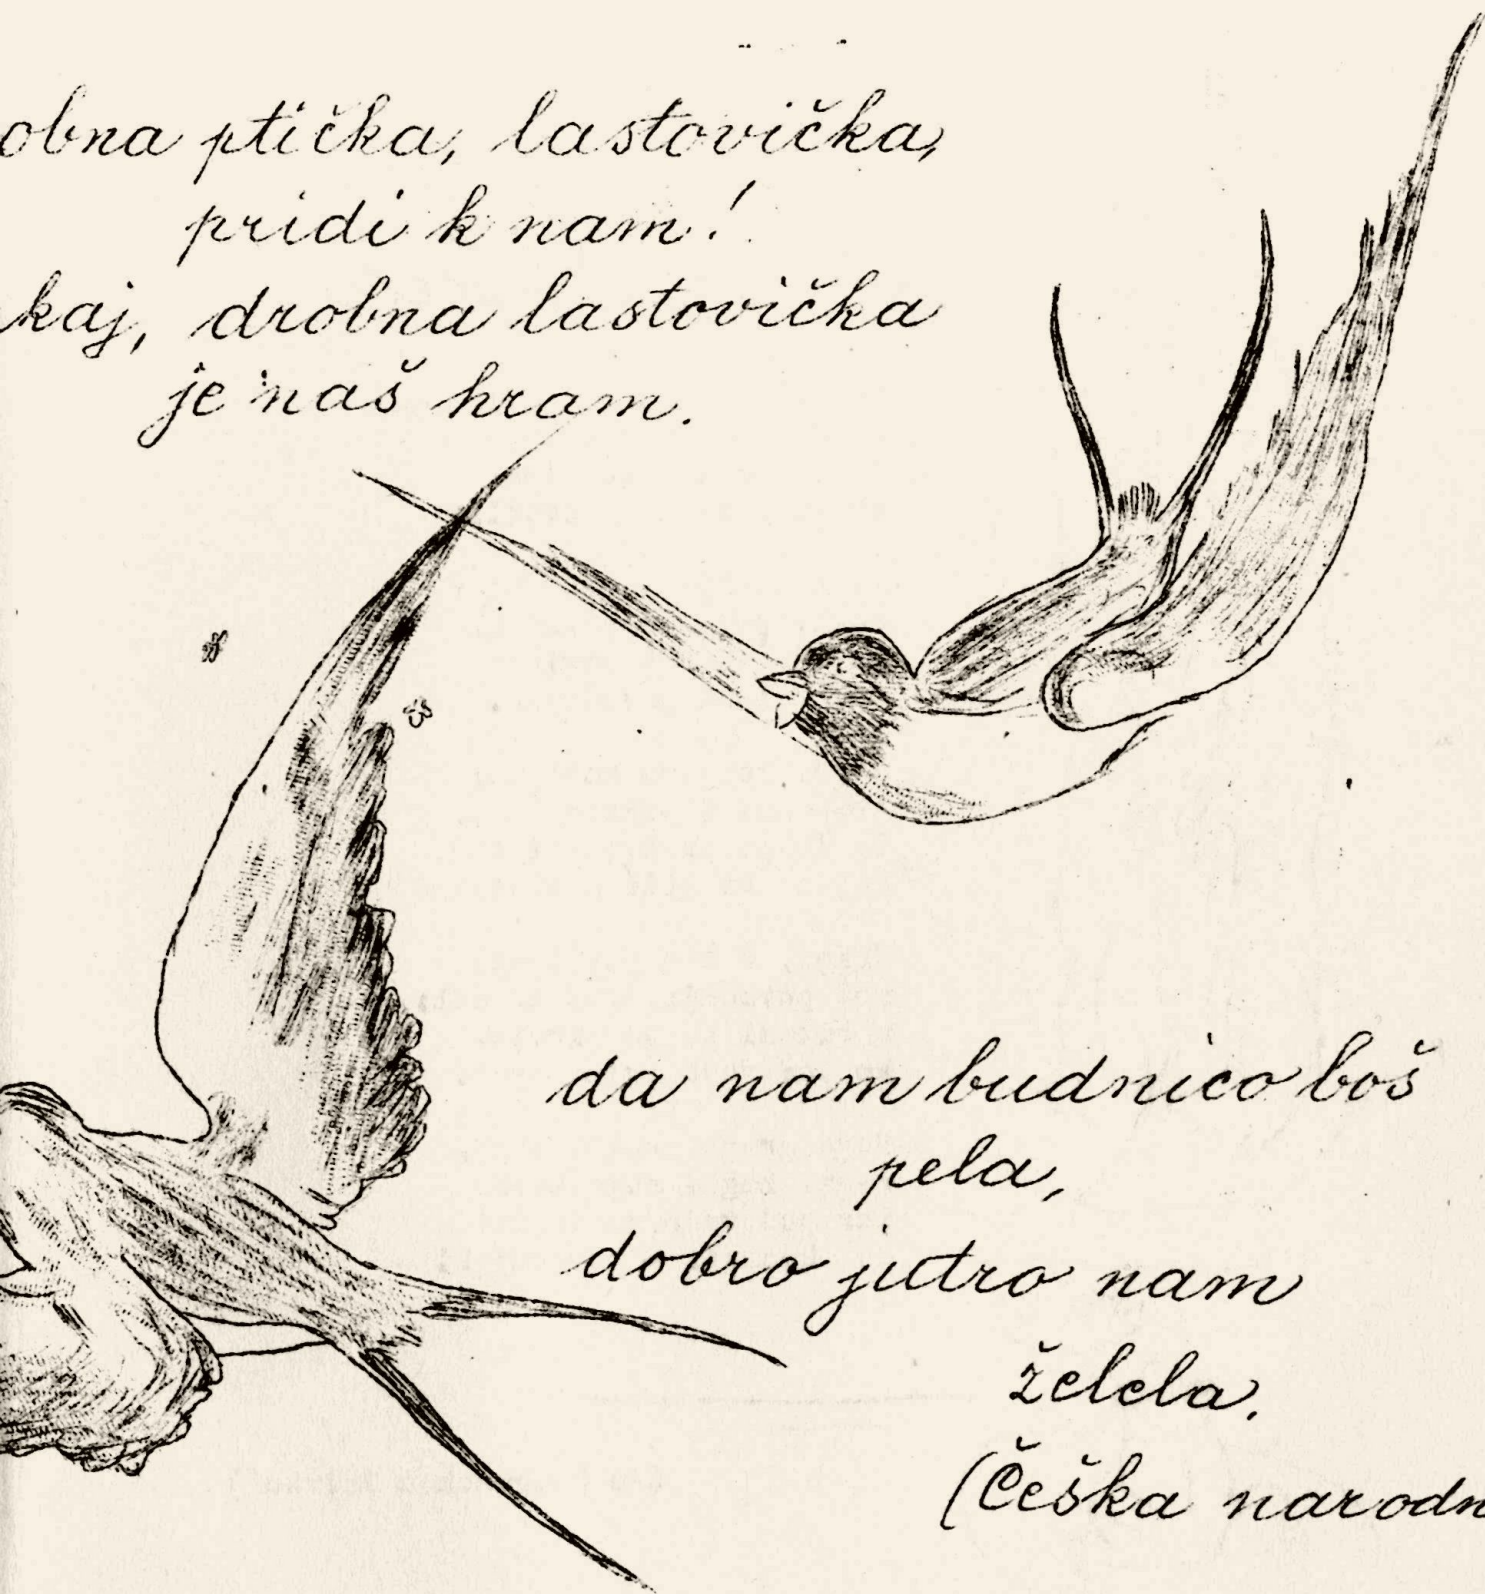 obna ptička, lastovička,
pridi k nam!
kaj, drobna lastovička
je naš hram.
da nam budnico boš
pela,
dobro jutro nam
želela.
(Češka narodn